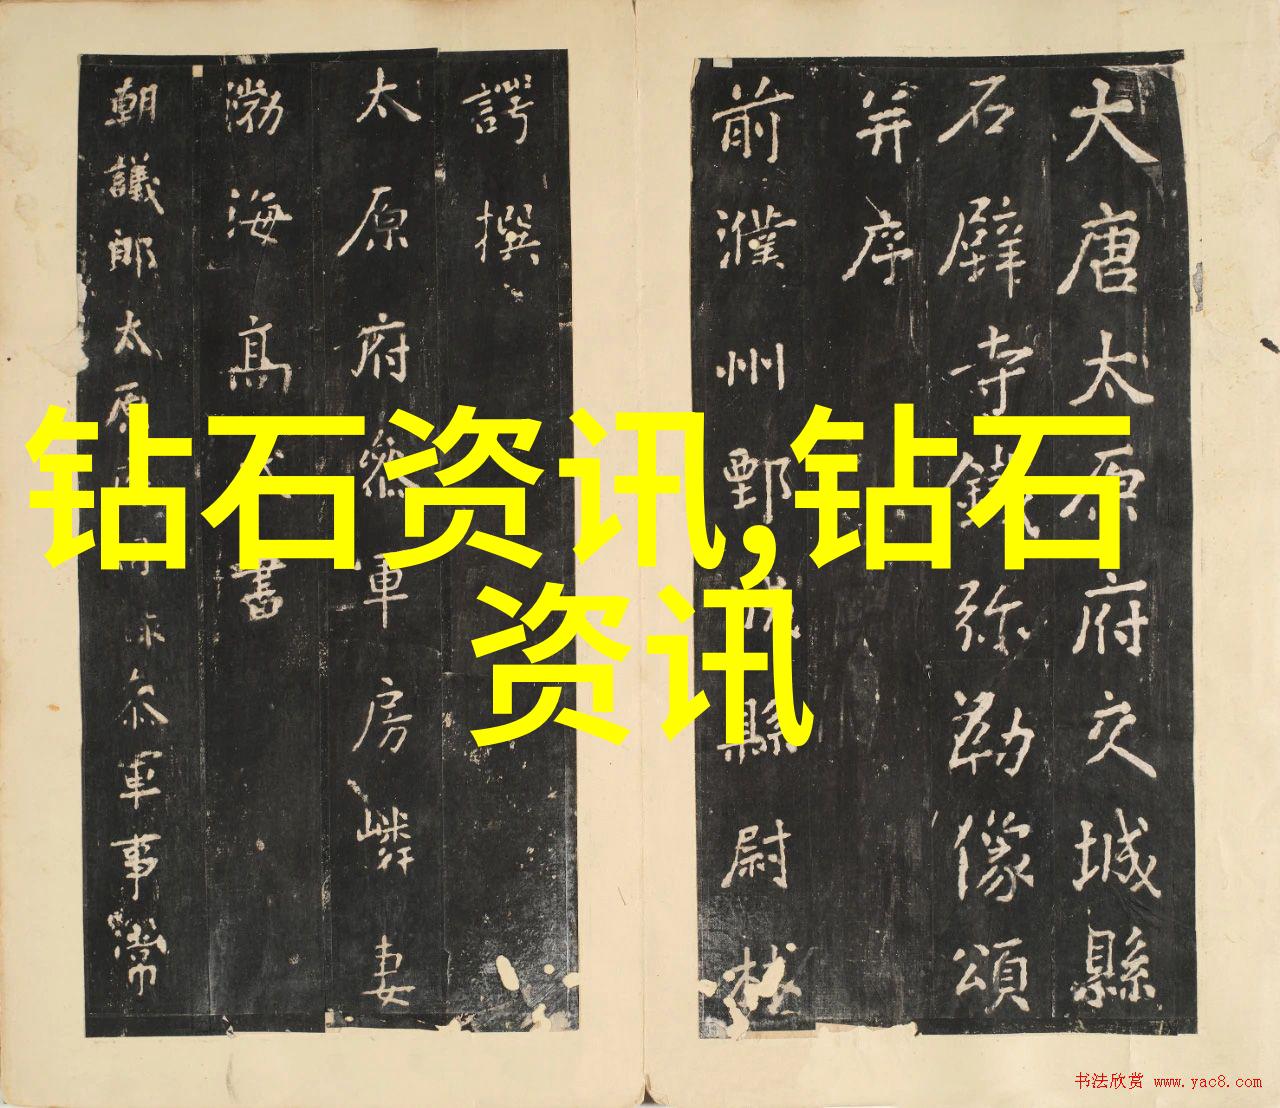 大唐太原府交城縣
石壁寺鐵弥勒像頌
并序
前濮州鄄城縣尉林
諤撰
太原府叅軍房嶙妻
渤海高氏書
朝議郎太原府司錄叅軍事常
钻石资讯,钻石
资讯
书法欣赏 www.yac8.com